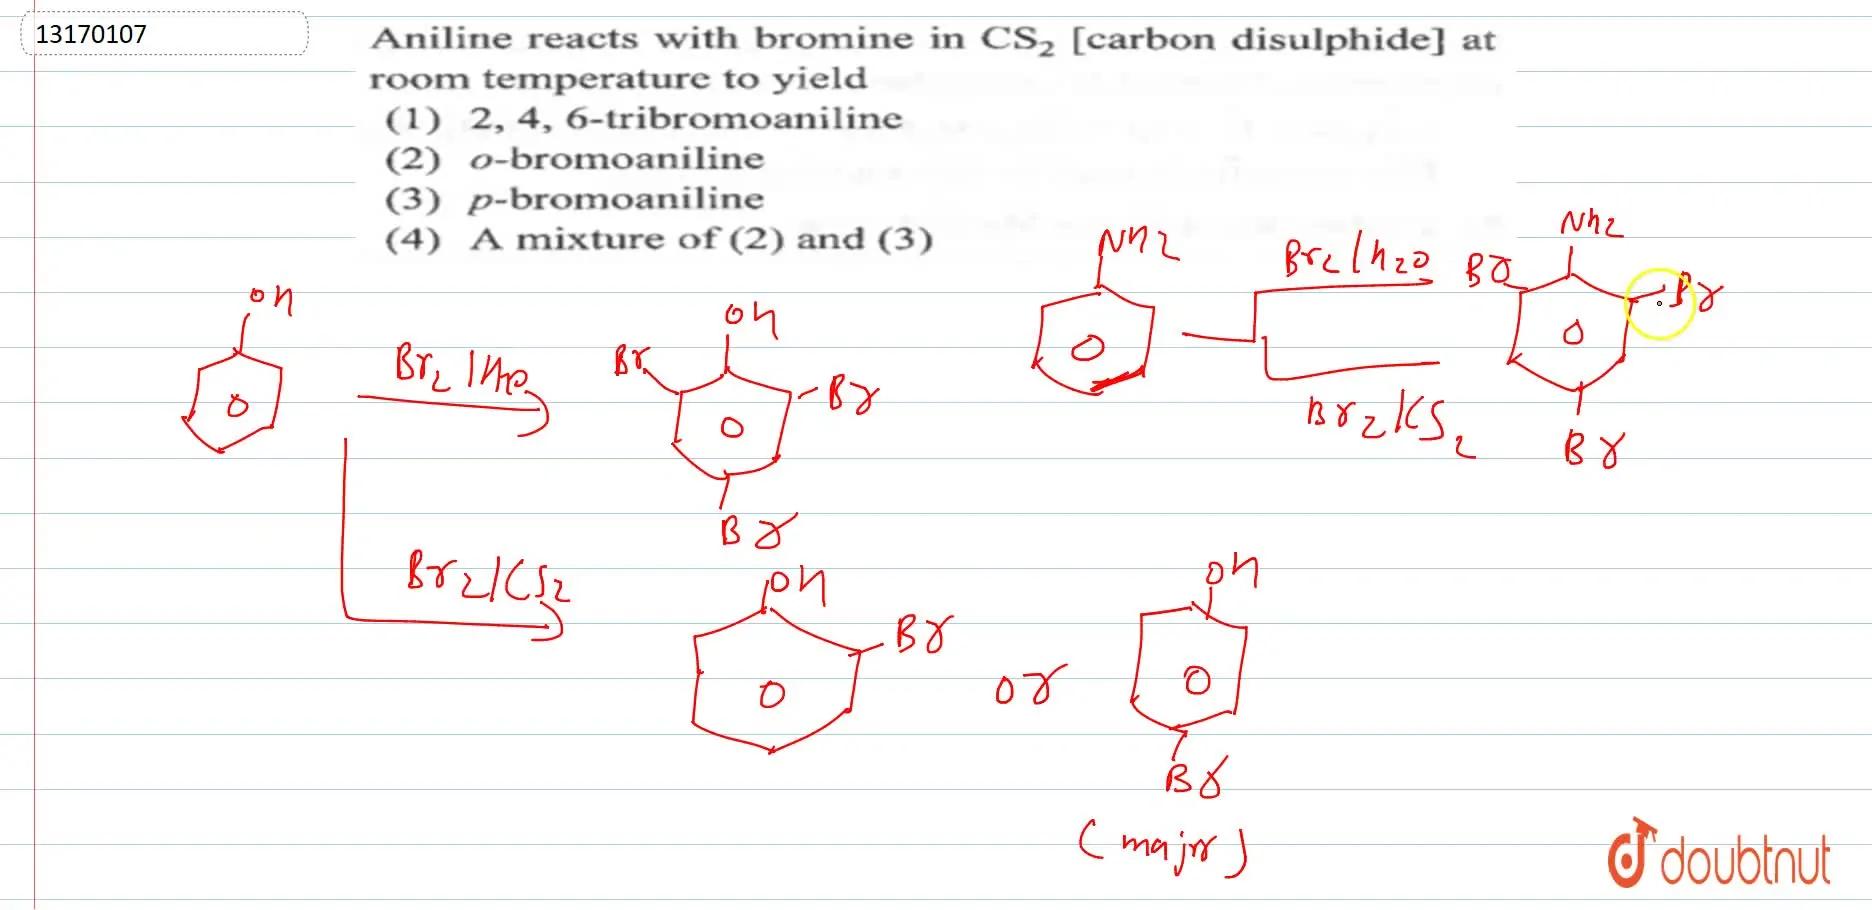 13170107
Aniline reacts with bromine in CS₂ [carbon disulphide] at
room temperature to yield
(1) 2, 4, 6-tribromoaniline
(2) o-bromoaniline
(3) p-bromoaniline
(4) A mixture of (2) and (3)
NH2
Br2/H2O
NH2
Br
Br
Br
Br2/CS2
OH
Br2/H2O
OH
Br
Br
Br
Br2/CS2
OH
Br
or
OH
Br
(major)
doubtnut